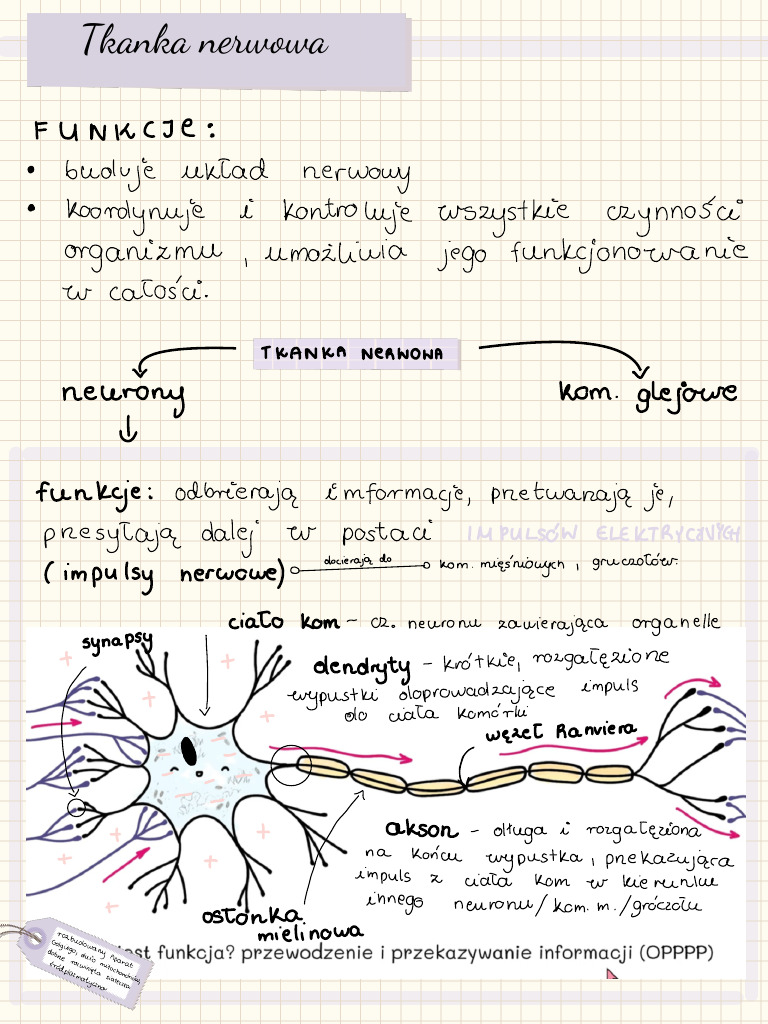 Tkanka nerwowa
FUNKCJE:
• buduje układ nerwowy
• koordynuje i kontroluje wszystkie czynności
organizmu, umożliwia jego funkcjonowanie
w całości.
TKANKA NERWOWA
neurony
kom. glejowe
funkcje: odbierają informacje, przetwarzają je,
przesyłają dalej w postaci IMPULSÓW ELEKTRYCZNYCH
(impulsy nerwowe) docierają do kom. mięśniowych, gruczołów.
ciało kom - cz. neuronu zawierająca organelle
synapsy
dendryty - krótkie, rozgałęzione
wypustki doprowadzające impuls
do ciała komórki
węzeł Ranviera
akson - długa i rozgałęziona
na końcu wypustka, przekazująca
impuls z ciała kom w kierunku
innego neuronu/kom. m./gróczołu
osłonka
mielinowa
jest funkcja? przewodzenie i przekazywanie informacji (OPPPP)
rozbudowany Aparat
Golgiego, dużo mitochondriów,
dobrze rozwinięta siateczka
śródplazmatyczna